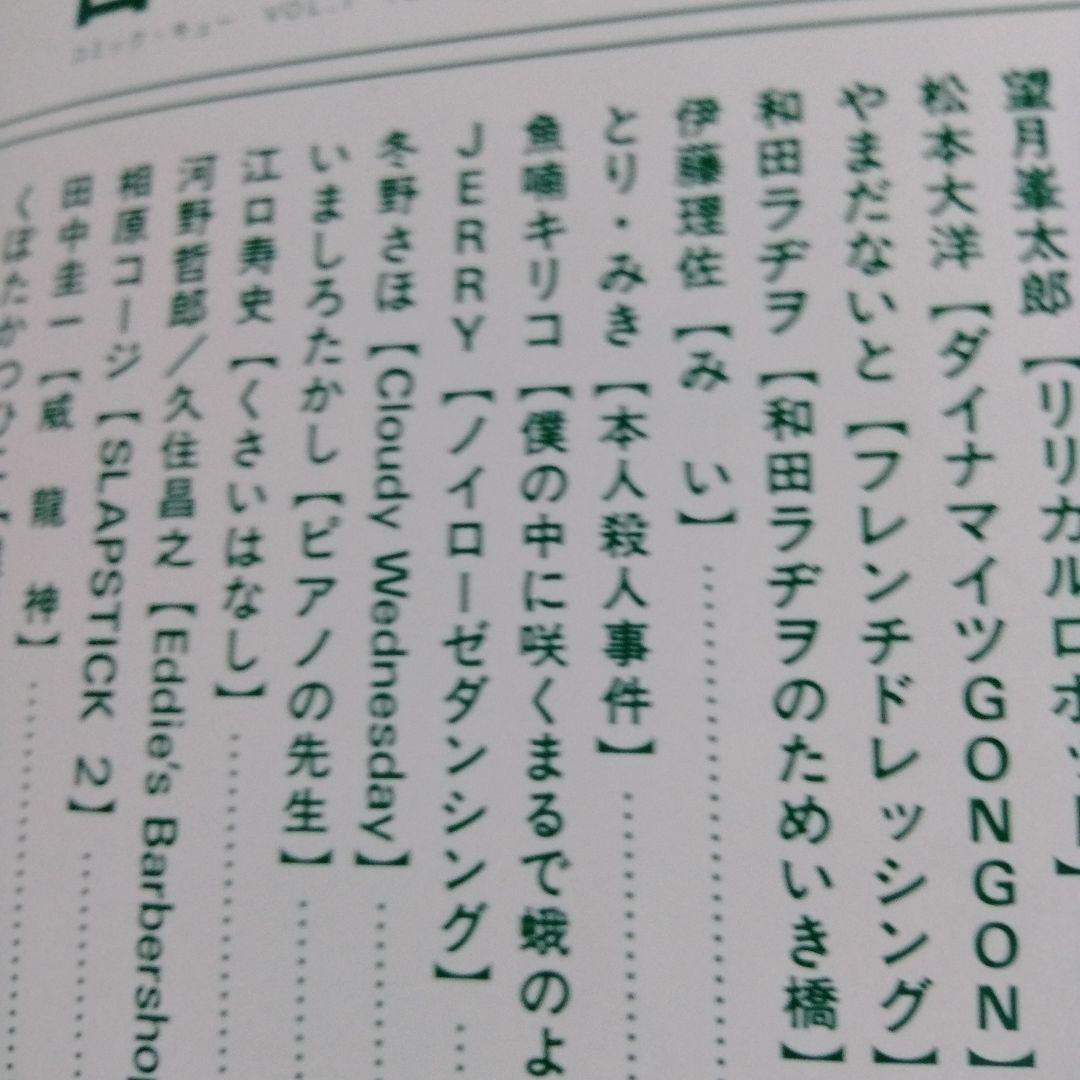 コミック・キュー VOL.
望月峯太郎【リリカルロボット】
松本大洋【ダイナマイツGONGON】
やまだないと【フレンチドレッシング】
和田ラヂヲ【和田ラヂヲのためいき橋】
伊藤理佐【み い】
とり・みき【本人殺人事件】
魚喃キリコ【僕の中に咲くまるで蛾のよ
JERRY【ノイローゼダンシング】
冬野さほ【Cloudy Wednesday】
いましろたかし【ピアノの先生】
江口寿史【くさいはなし】
河野哲郎／久住昌之【Eddie's Barbershop
相原コージ【SLAPSTICK 2】
田中圭一【威 龍 神】
くぼたかつひ